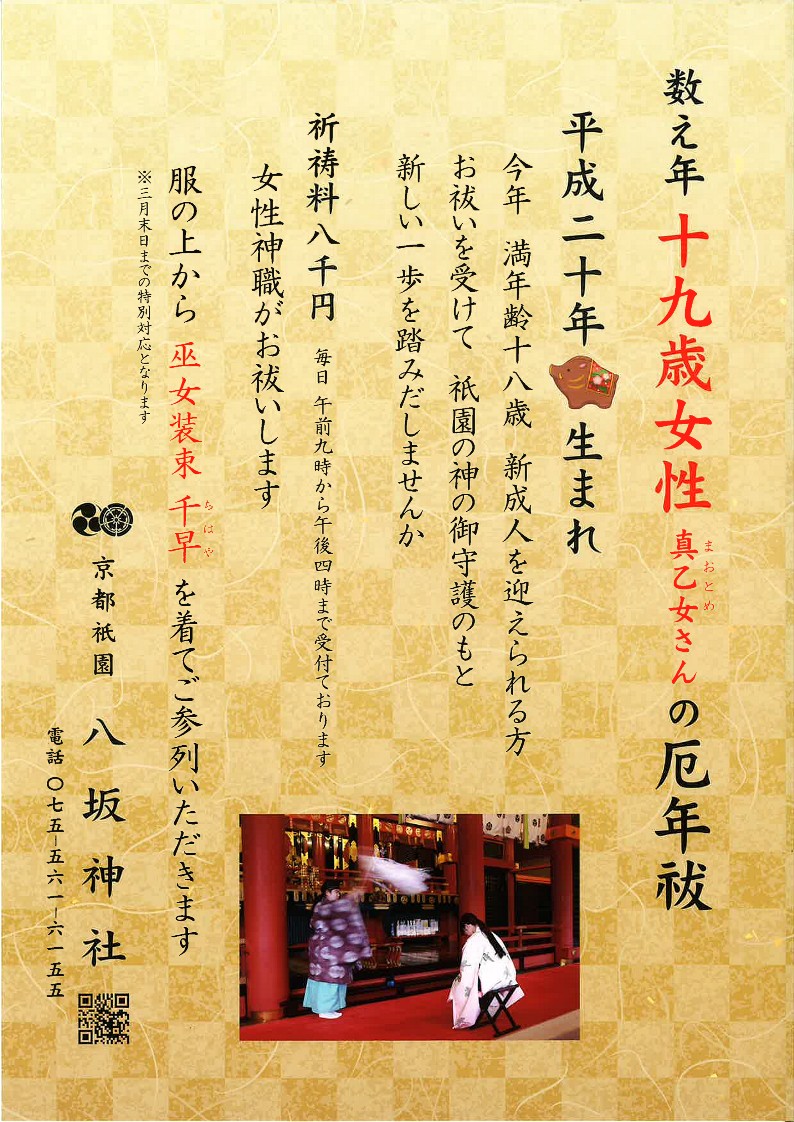 数え年 十九歳女性 真乙女さんの厄年祓
まおとめ
平成二十年 生まれ
今年 満年齢十八歳 新成人を迎えられる方
お祓いを受けて 祇園の神の御守護のもと
新しい一歩を踏みだしませんか
祈祷料八千円 毎日 午前九時から午後四時まで受付ております
女性神職がお祓いします
服の上から 巫女装束 千早 を着てご参列いただきます
ちはや
※三月末日までの特別対応となります
京都祇園 八坂神社
電話 〇七五−五六一−六一五五